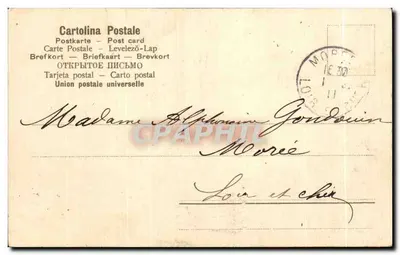 Cartolina Postale
Postkarte – Post card
Carte Postale – Levelező-Lap
Brefkort – Briefkaart – Brevkort
ОТКРЫТОЕ ПИСЬМО
Tarjeta postal – Carto postal
Union postale universelle
MORÉE
Madame Alphonsine Gondouin
Morée
Loir et cher